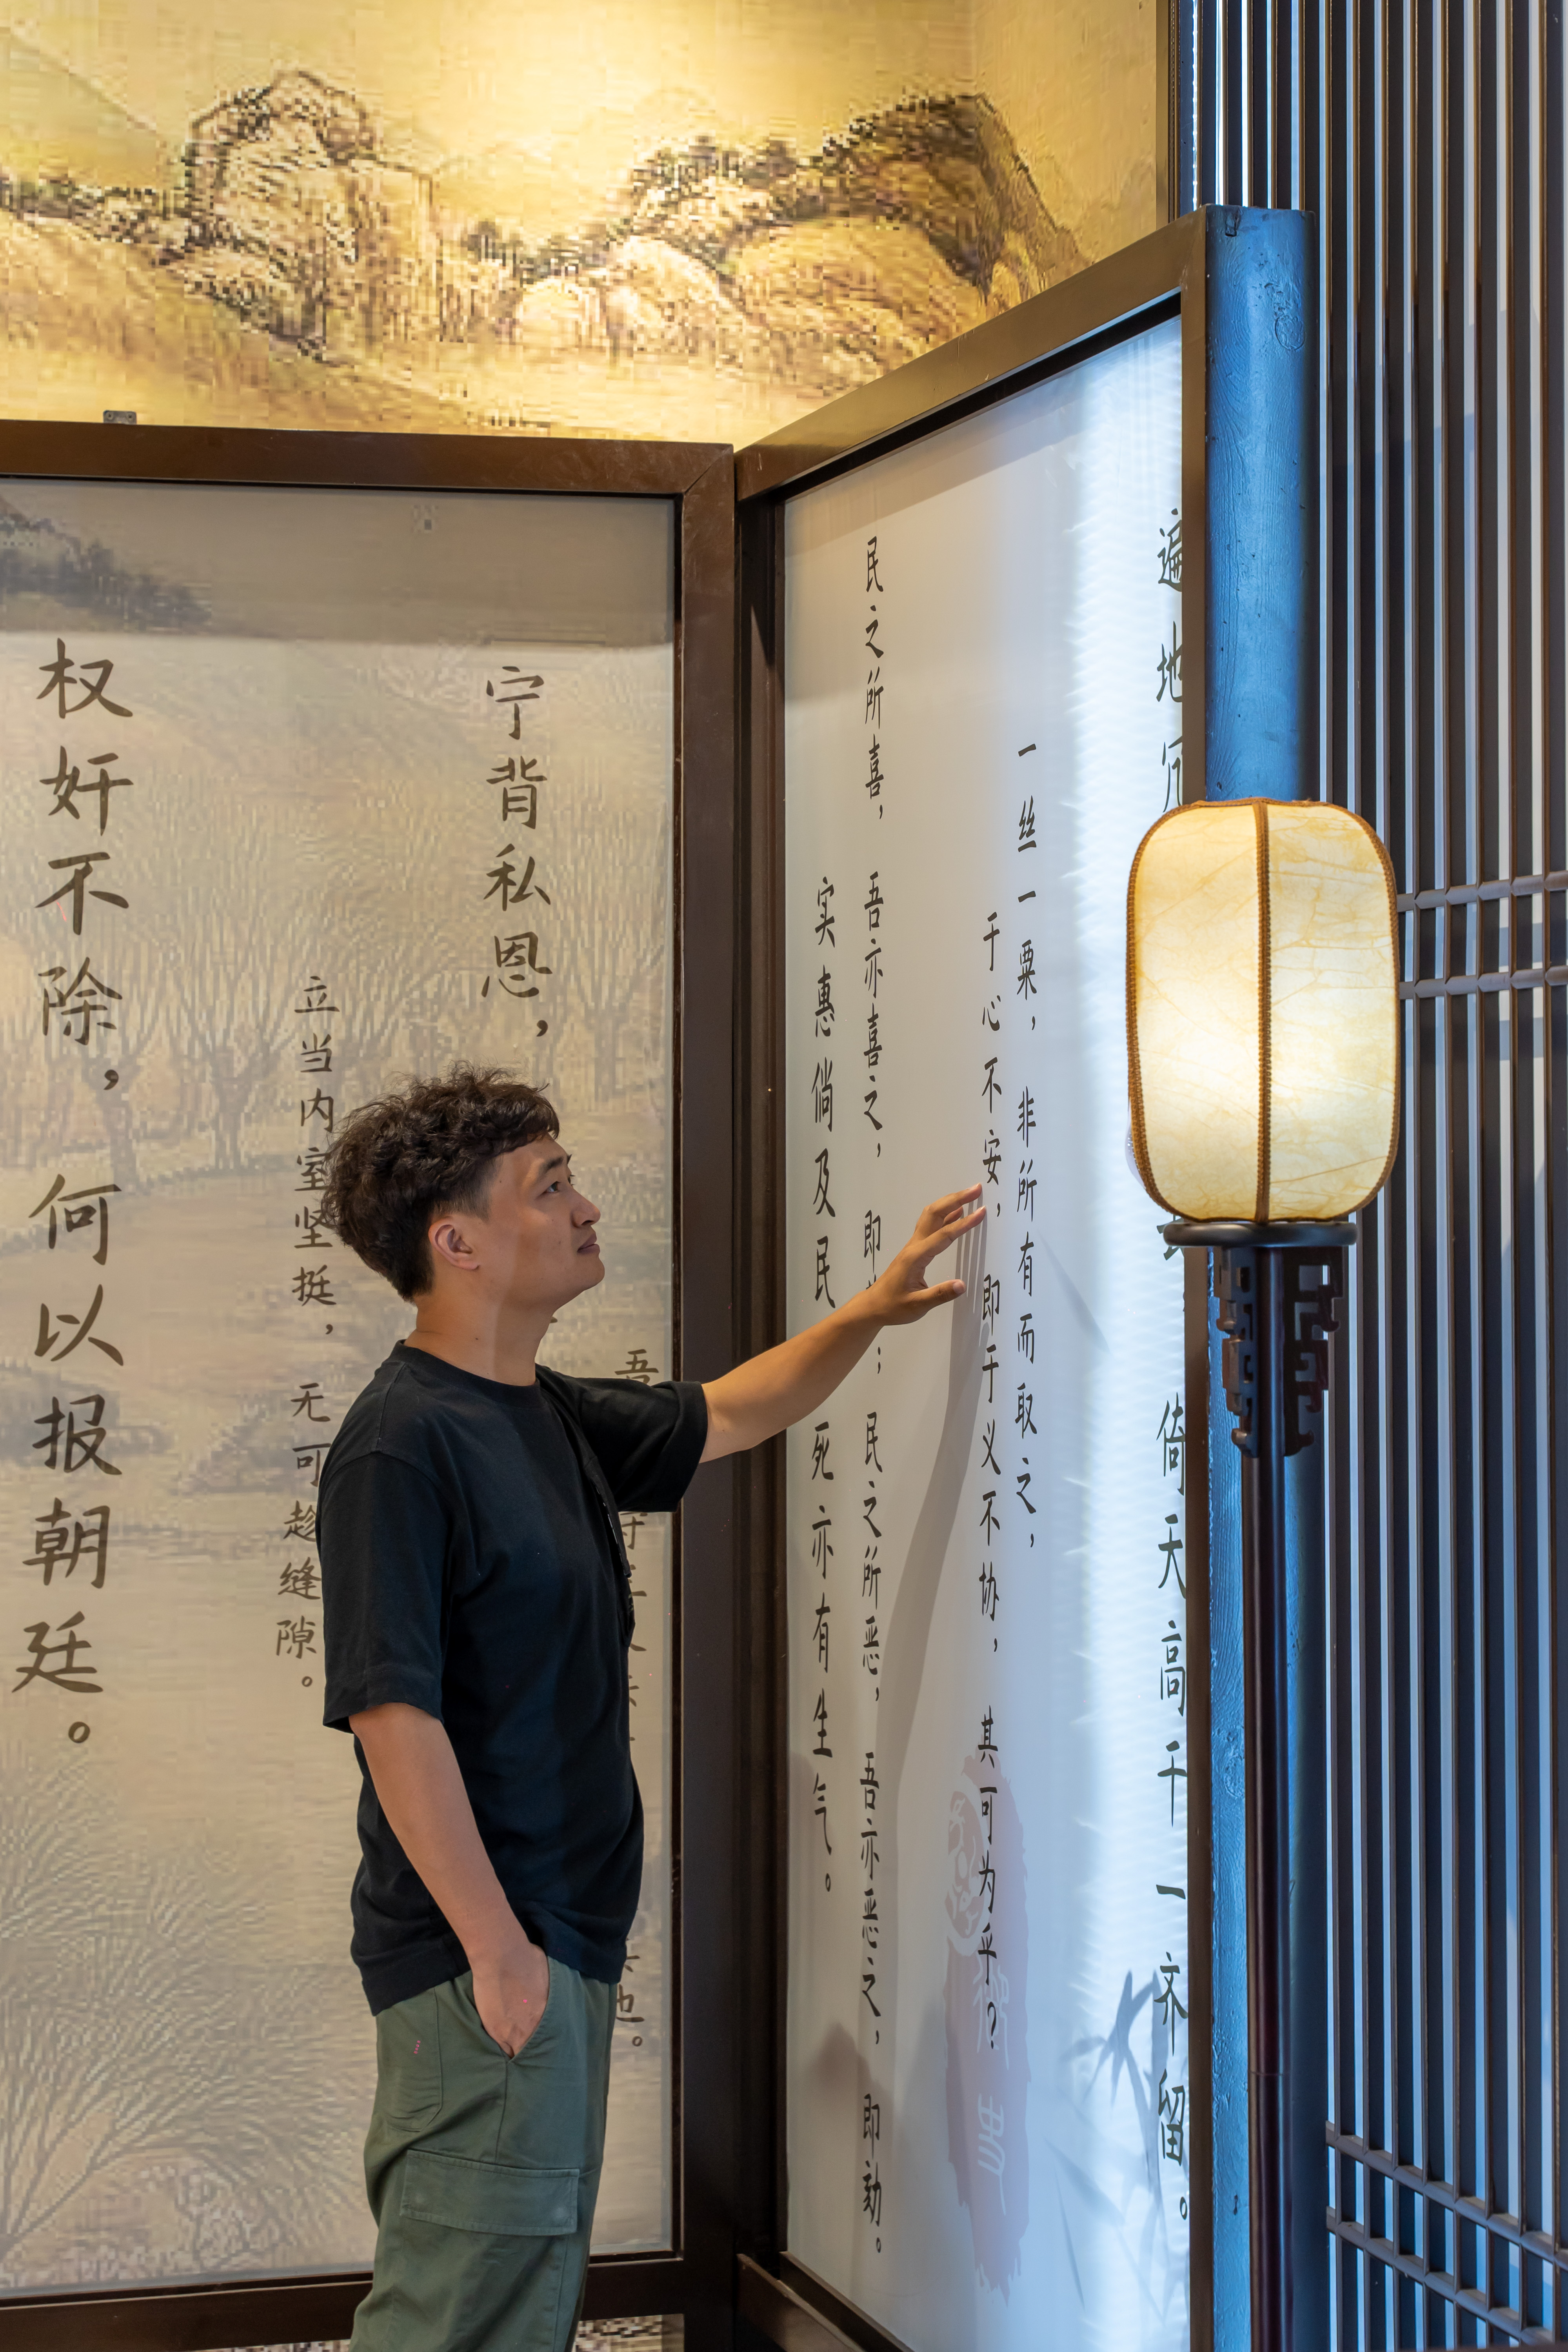 遍地 倚天高 一齐留。
一丝一粟，非所有而取之，
于心不安，即于义不协，其可为乎？
民之所喜，吾亦喜之，即；民之所恶，吾亦恶之，即劾。
实惠倘及民 死亦有生气。
吾
宁背私恩，
立当内室坚挺，无可趁缝隙。
权奸不除，何以报朝廷。